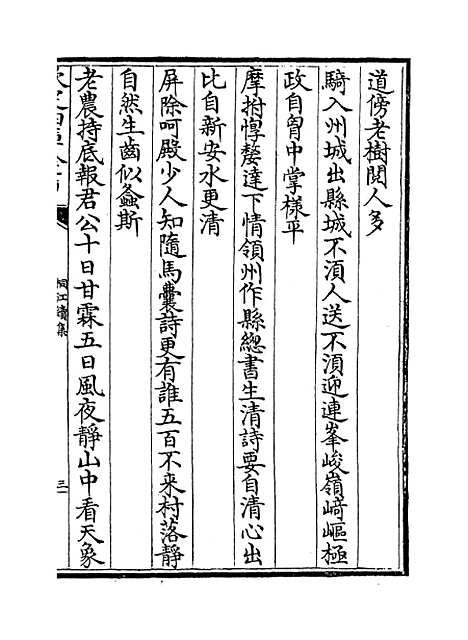 道傍老樹閱人多
騎入州城出縣城不湏人送不湏迎連峯峻嶺﨑嶇極
政自胷中掌樣平
摩拊惸嫠達下情領州作縣總書生清詩要自清心出
比自新安水更清
屏除呵殿少人知隨馬囊詩更有誰五百不来村落靜
自然生齒似螽斯
老農持底報君公十日甘霖五日風夜靜山中看天象
桐江續集
三一